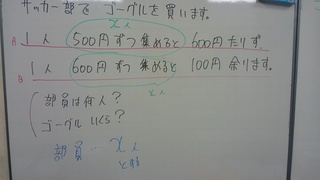 サッカー部で ゴーグルを 買います。
x人
A 1人 500円ずつ集めると 600円たりず、
B 1人 600円ずつ集めると 100円余ります。
x人
部員は何人?
ゴーグルいくら?
部員 … x人
とする